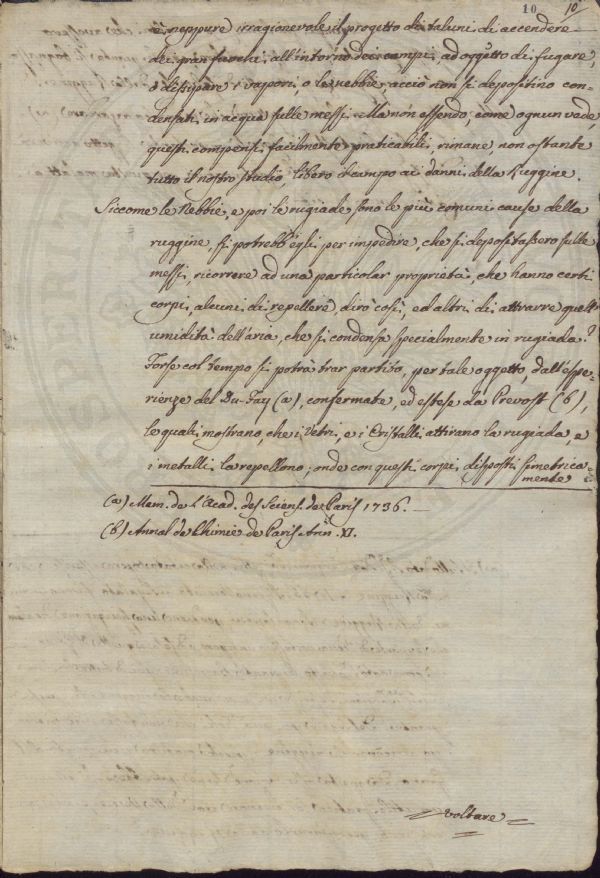 10 10
è neppure irragionevole il progetto di taluni di accendere
dei gran fuochi all'intorno dei campi, ad oggetto di fugare,
o dissipare i vapori, o le nebbie, acciò non si depositino con=
densati in acqua sulle messi. Ma non essendo, come ognun vede,
questi compensi facilmente praticabili, rimane non ostante
tutto il nostro studio, libero il campo ai danni della Ruggine.
Siccome le Nebbie, e poi le rugiade sono le più comuni cause della
ruggine, si potrebb'egli per impedire, che si depositassero sulle
messi, ricorrere ad una particolar proprietà, che hanno certi
corpi, alcuni di repellere, dirò così, ed altri di attrarre quell'
umidità dell'aria, che si condensa specialmente in rugiada?
Forse col tempo si potrà trar partito, per tale oggetto, dall'espe=
rienze del Du-Fay (a), confermate, ed estese da Prevost (b),
le quali mostrano, che i Vetri, e i Cristalli attirano la rugiada, e
i metalli la repellono; onde con questi corpi disposti simetrica=
mente
(a) Mem. de l'Acad. des Sciens. de Paris 1736.
(b) Annal de Chimie de Paris Ann. XI.
voltare